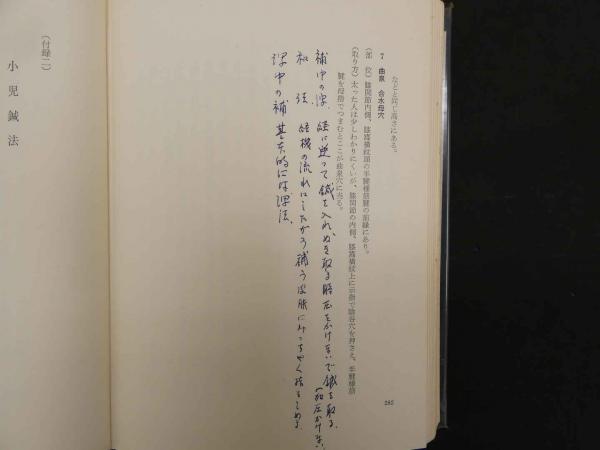 などと同じ高さにある。
7 曲泉 合水母穴
(部 位) 膝関節内側、膝窩横紋頭の半腱様筋腱の前縁にあり。
(取り方) 太った人は少しわかりにくいが、膝関節の内側、膝窩横紋上に示指で陰谷穴を押さえ、半腱様筋
腱を母指でつまむとここが曲泉穴に当る。
補中の瀉 経に逆って鍼を入れ ぬき取る時 圧をかけないで鍼を取る。
(和圧かけない)
和 法 経機の流れにしたがう 補う 皮膚に
瀉中の補 基本的には瀉法、
285
(付録二)
小児鍼法